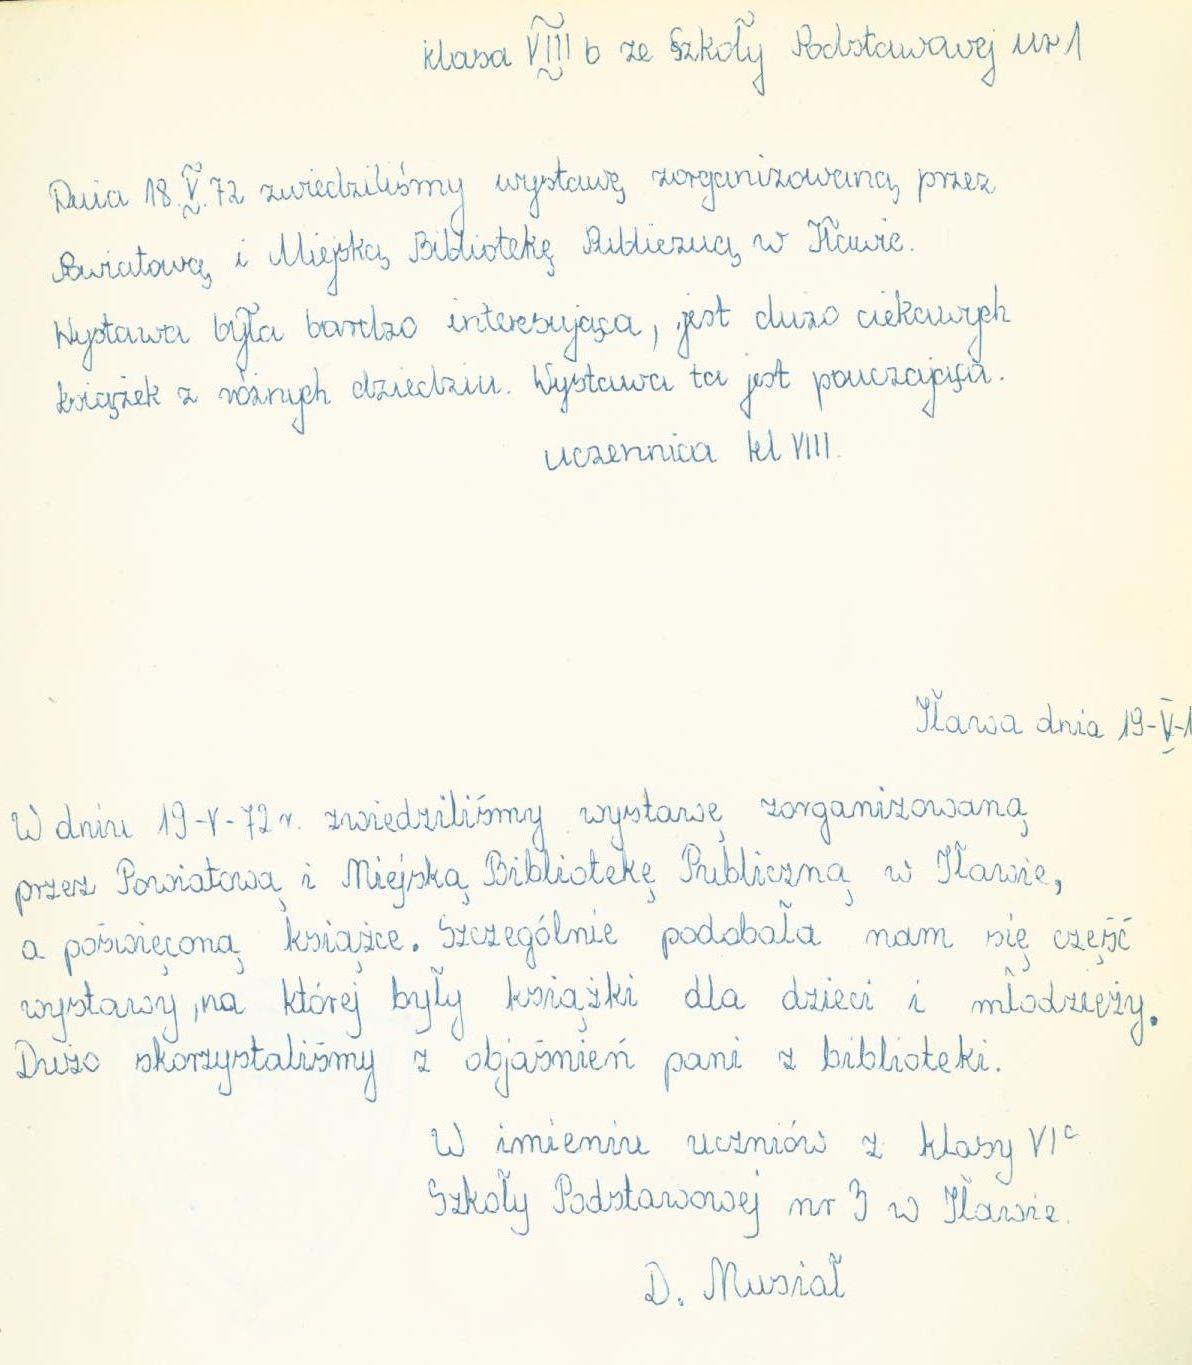 klasa VIII b ze Szkoły Podstawowej nr 1
Dnia 18.V.72 zwiedziliśmy wystawę zorganizowaną przez
Powiatową i Miejską Bibliotekę Publiczną w Iławie.
Wystawa była bardzo interesująca, jest dużo ciekawych
książek z różnych dziedzin. Wystawa ta jest pouczająca.
uczennica kl VIII.
Iława dnia 19-V-1
W dniu 19-V-72 r. zwiedziliśmy wystawę zorganizowaną
przez Powiatową i Miejską Bibliotekę Publiczną w Iławie,
a poświęconą książce. Szczególnie podobała nam się część
wystawy, na której były książki dla dzieci i młodzieży.
Dużo skorzystaliśmy z objaśnień pani z biblioteki.
W imieniu uczniów z klasy VIc
Szkoły Podstawowej nr 3 w Iławie.
D. Musiał